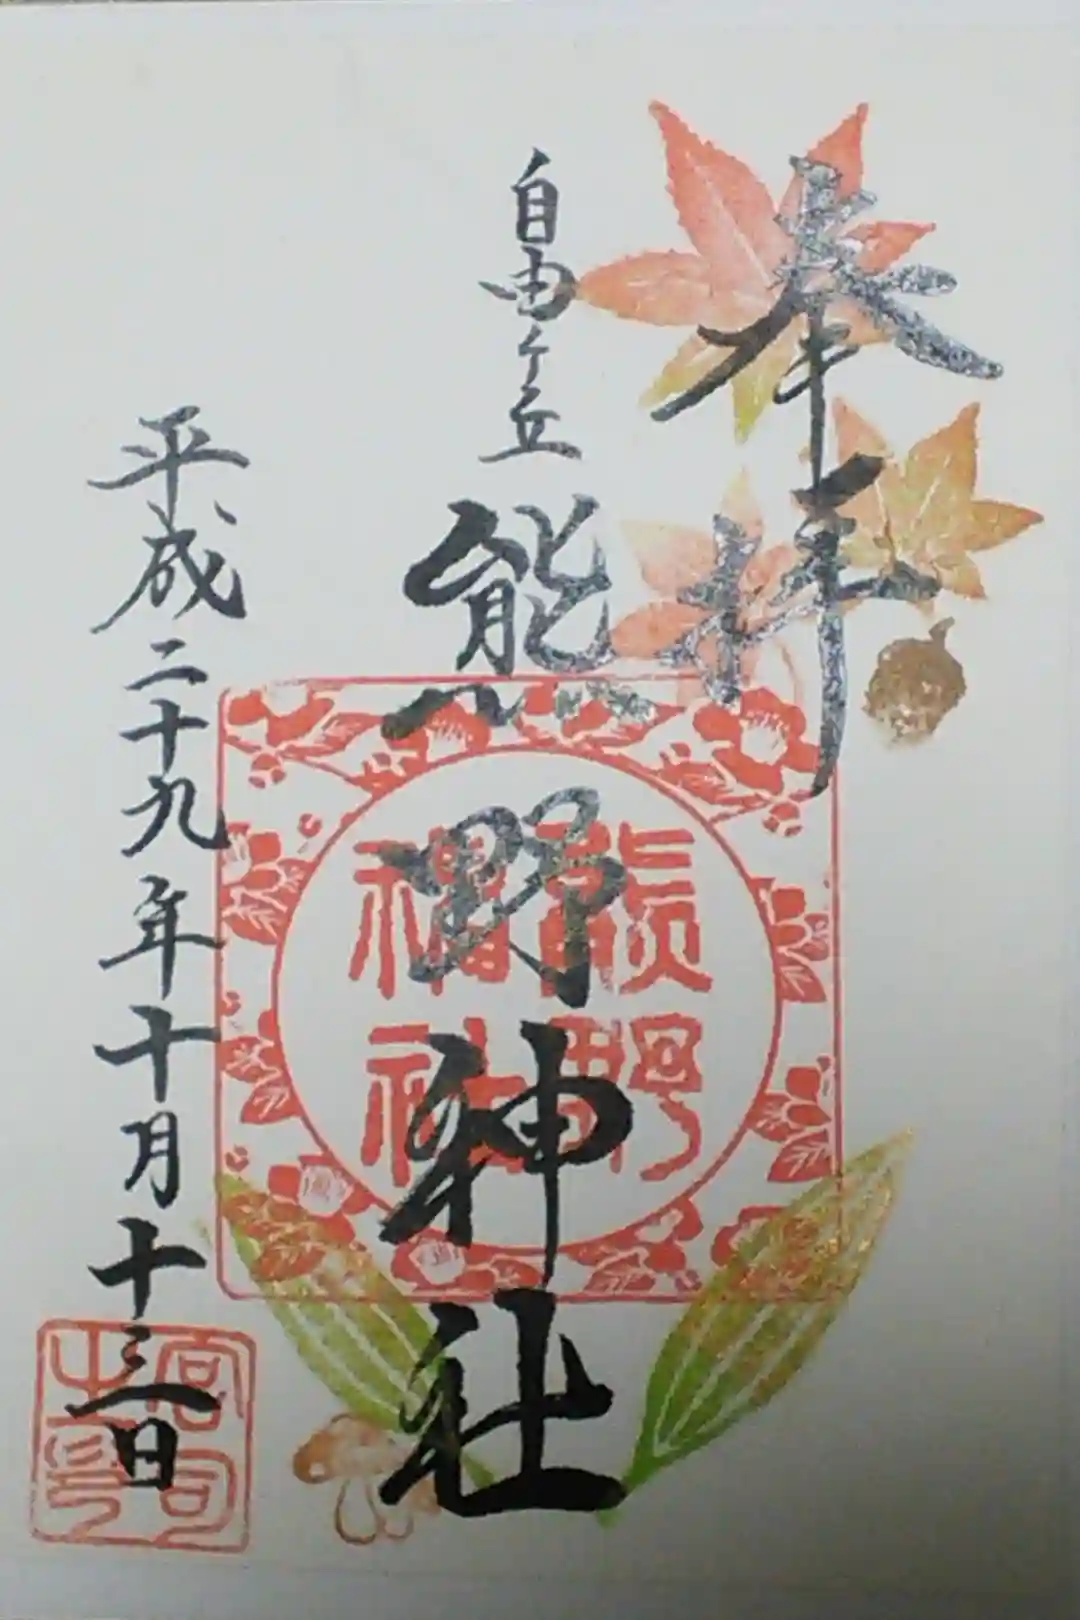 奉拝
自由ヶ丘
熊野神社
熊野
神社
平成二十九年十月十三日
宮司
之印